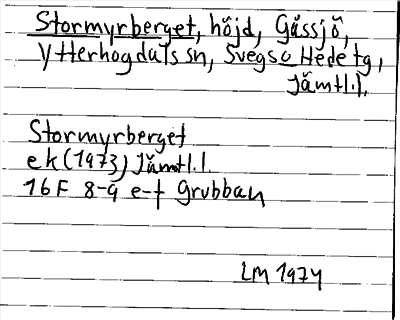 Stormyrberget, höjd, Gåssjö,
Ytterhogdals sn, Svegs o Hede tg,
Jämtl.l.
Stormyrberget
ek (1973) Jämtl.l.
16F 8-9 e-f Grubban
LM 1974